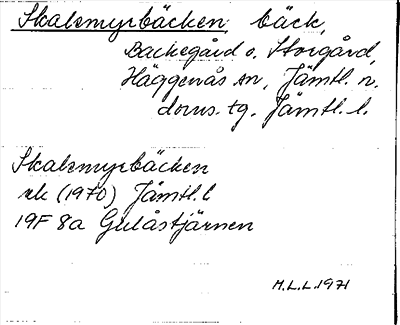 Skalsmyrbäcken, bäck,
Backegård o. Storgård,
Häggenås sn, Jämtl. n.
doms. tg. Jämtl. l.
Skalsmyrbäcken
ek (1970) Jämtl. l
19F 8a Gulåstjärnen
M.L.L. 1971